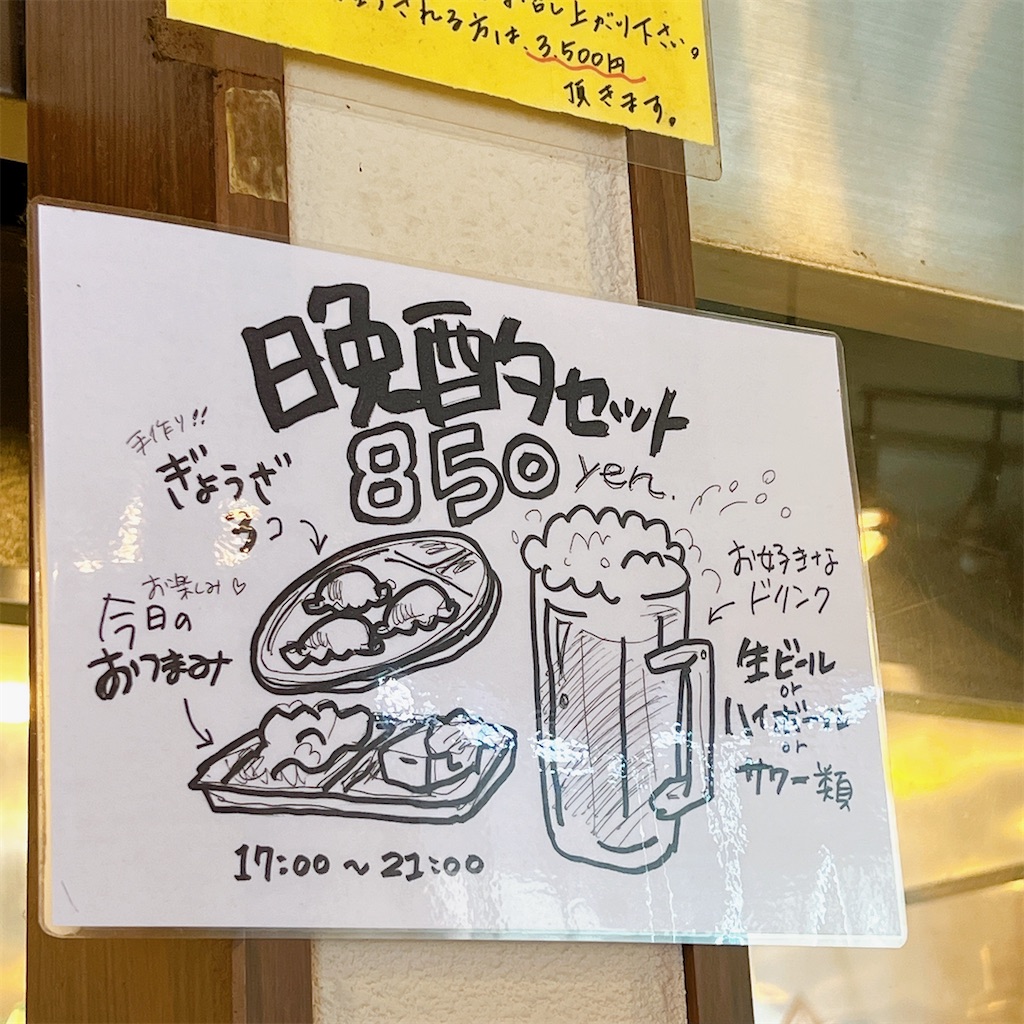 上がり下さい。
される方は、3,500円
頂きます。
晩酌セット
850 yen.
手作り!!
ぎょうざ
3コ
お楽しみ♡
今日の
おつまみ
お好きな
ドリンク
生ビール
or
ハイボール
or
サワー類
17:00～21:00